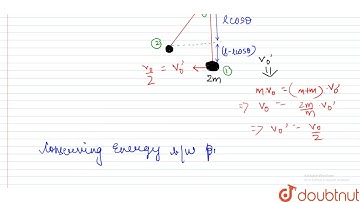 θ
l cosθ
②
(l-lcosθ)
v₀/2 = v₀' ←
①
2m
v₀'
⇓
m v₀ = (m+m) v₀'
⇒ v₀ = 2m/m v₀'
⇒ v₀' = v₀/2
Conserving Energy b/w p
doubtnut